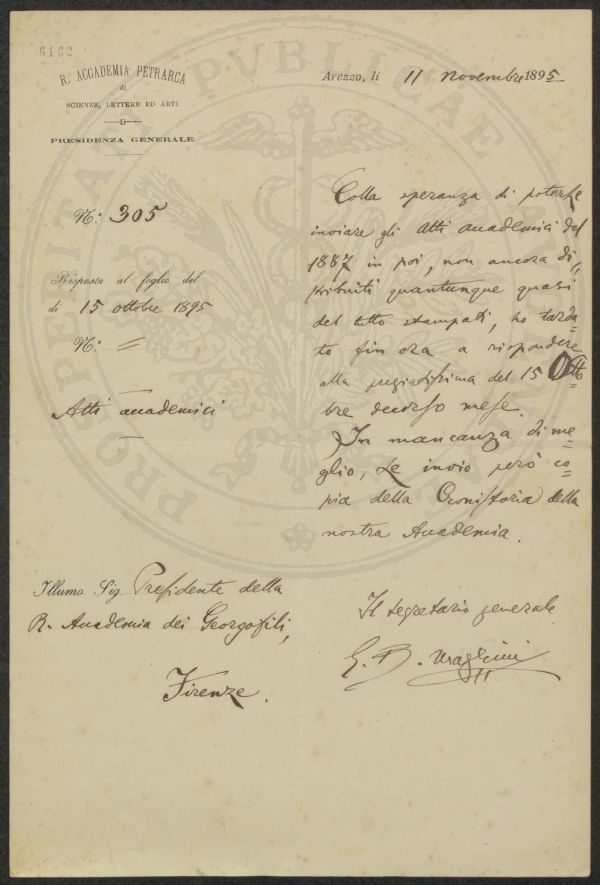 6162
R. ACCADEMIA PETRARCA
di
SCIENZE, LETTERE ED ARTI
di
PRESIDENZA GENERALE
Arezzo, li 11 novembre 1895
N.º 305
Risposta al foglio del
di 15 ottobre 1895
N.º =
Atti accademici
Colla speranza di poterLe
inviare gli Atti accademici del
1887 in poi, non ancora di„
stribuiti quantunque quasi
del tutto stampati, ho tarda=
to fin ora a rispondere
alla pregiatissima del 15 Otto
bre decorso mese.
In mancanza di me=
glio, Le invio però co=
pia della Cronistoria della
nostra Accademia.
Illumo Sig. Presidente della
R. Accademia dei Georgofili,
Firenze.
Il segretario generale
G. B.
PROSPERITATI PVBLICAE